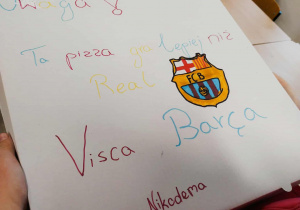 Uwaga
Ta pizza gra lepiej niż
Real
FCB
Visca Barça
Nikodema